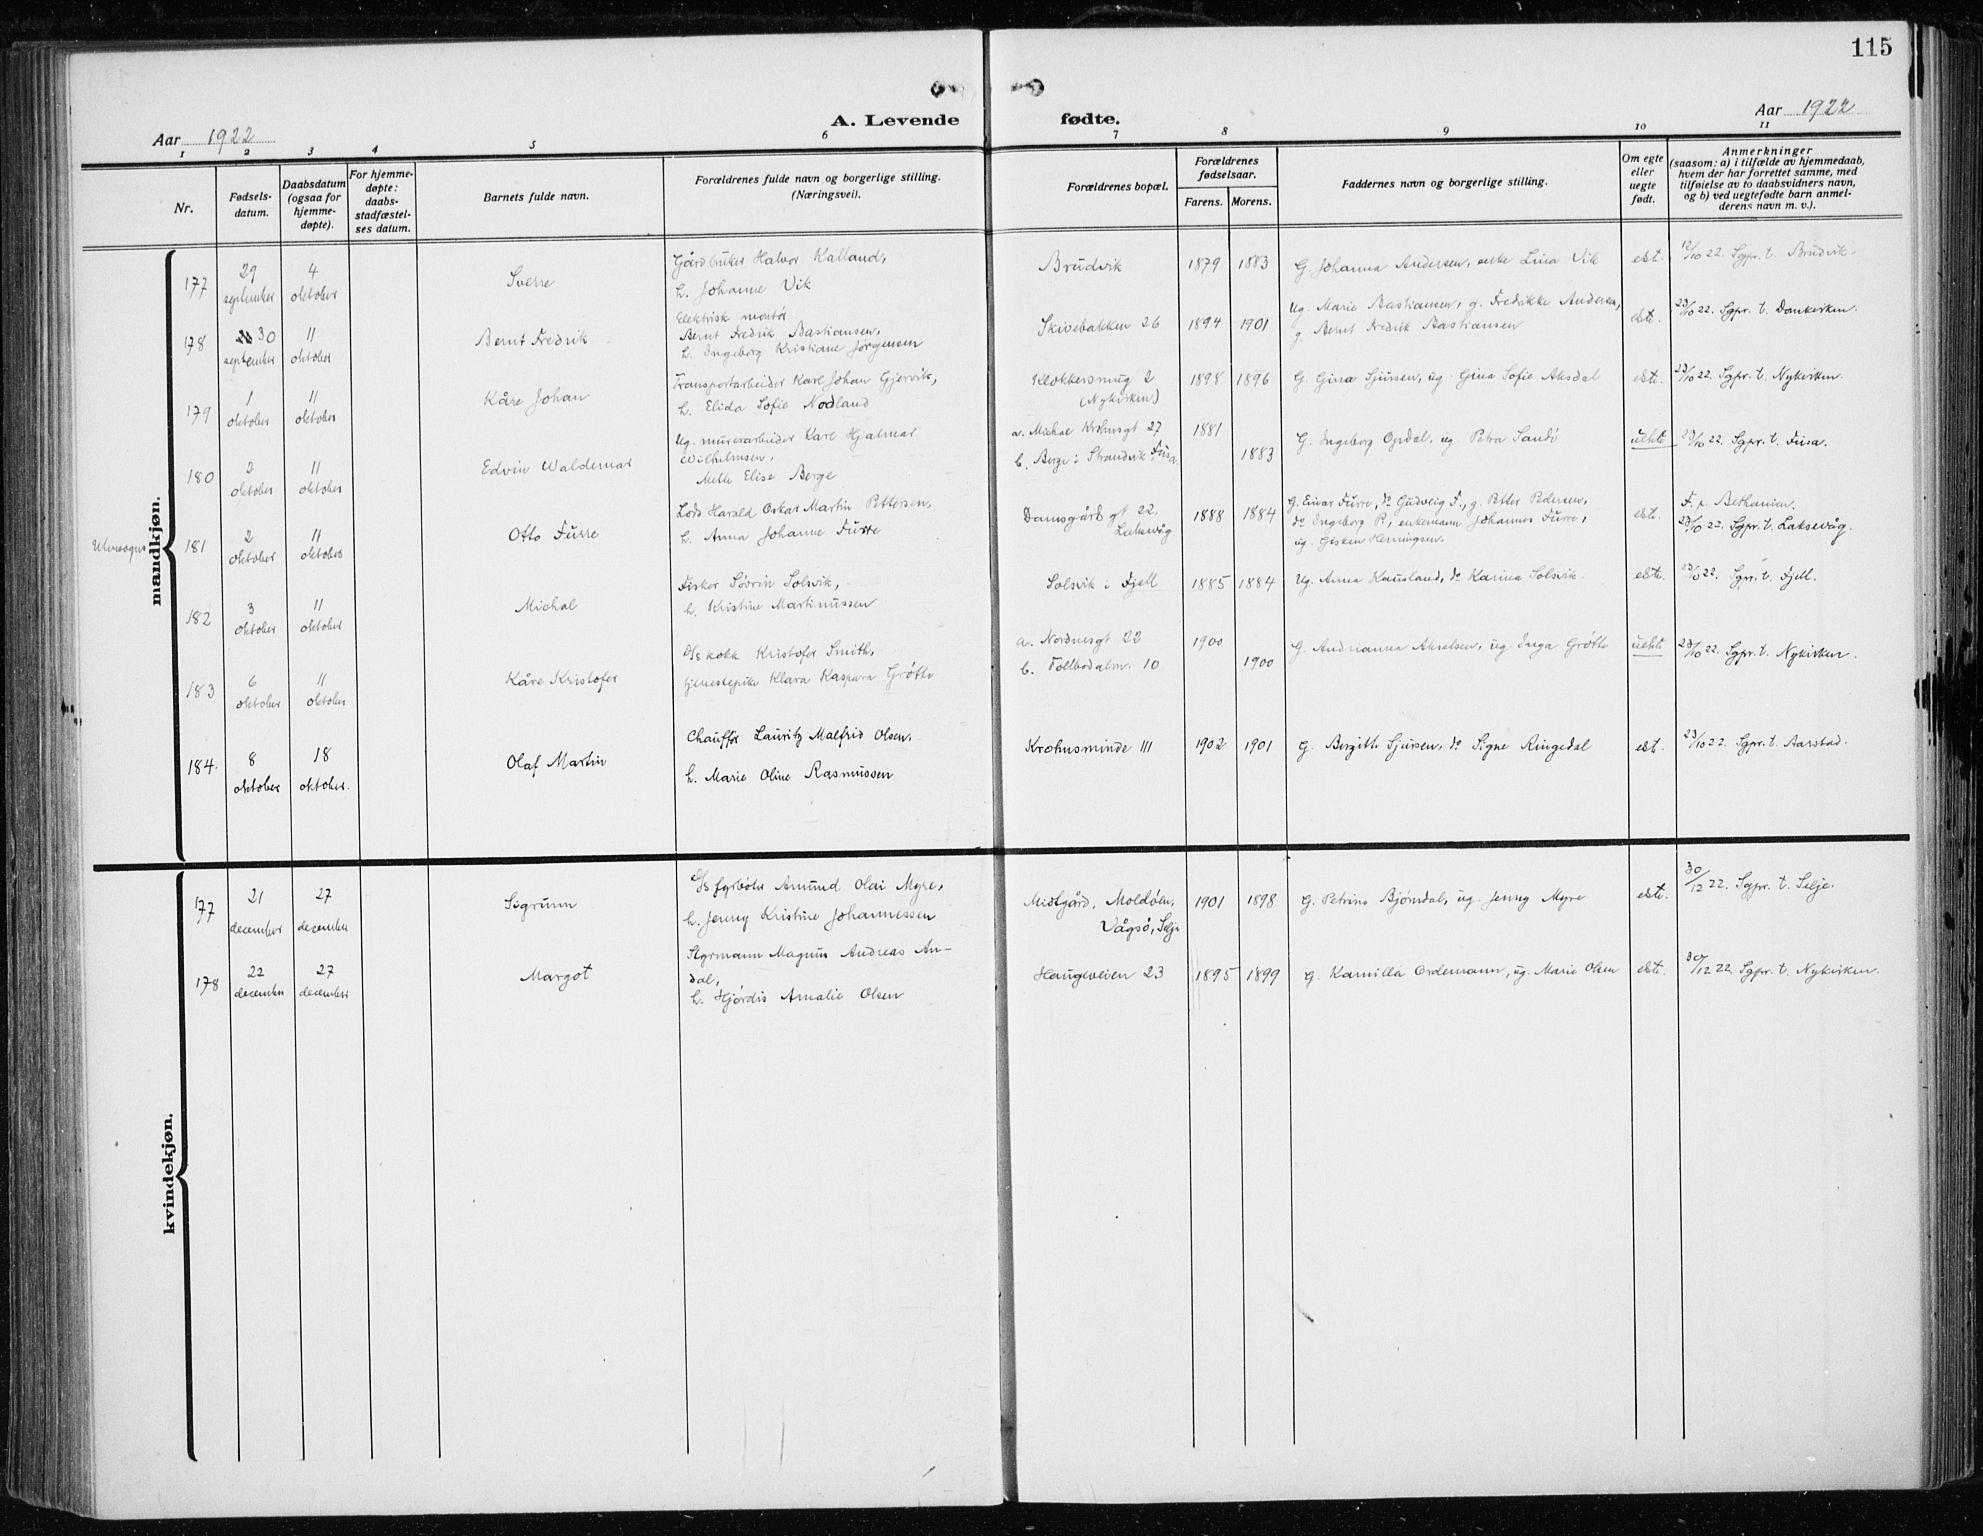 115
A. Levende fødte.
Aar 1922
Aar 1922
1 2 3 4 5 6 7 8 9 10 11
Nr.
Fødsels-
datum.
Daabsdatum
(ogsaa for
hjemme-
døpte).
For hjemme-
døpte:
daabs-
stadfæstel-
ses datum.
Barnets fulde navn.
Forældrenes fulde navn og borgerlige stilling.
(Næringsvei).
Forældrenes bopæl.
Forældrenes
fødselsaar.
Farens. Morens.
Faddernes navn og borgerlige stilling.
Om egte
eller
uegte
født.
Anmerkninger
(saasom: a) i tilfælde av hjemmedaab,
hvem der har forrettet samme, med
tilføielse av to daabsvidners navn,
og b) ved uegtefødte barn anmel-
derens navn m. v.).
mandkjøn.
177
29 september
4 oktober
Sverre
Gårdbruker Halvor Kalland,
h. Johanne Vik
Brudvik
1879 1883
G. Johanna Andersen, enke Lina Vik
ekt.
12/10 22. Sgpr. t. Brudvik.
178
30 september
11 oktober
Bernt Fredrik
Elektrisk montør
Bernt Fredrik Bastiansen,
h. Ingeborg Kristiane Jørgensen
Skivebakken 26
1894 1901
Ug. Marie Bastiansen, g. Fredrikke Andersen,
g. Bernt Fredrik Bastiansen
ekte.
23/10 22. Sgpr. t. Domkirken.
179
1 oktober
11 oktober
Kåre Johan
Transportarbeider Karl Johan Gjervik,
h. Elida Sofie Nodland
Klokkersmug 2
(Nykirken)
1898 1896
G. Gina Sjursen, ug. Gina Sofie Aksdal
ekte.
23/10 22. Sgpr. t. Nykirken.
180
2 oktober
11 oktober
Edvin Waldemar
Ug. murerarbeider Karl Hjalmar
Wilhelmsen,
Mette Elise Berge
a. Michal Krohnsgt 27
b. Berge i Strandvik Fusa.
1881
1883
G. Ingeborg Opdal, ug. Petra Sandø
uekte
23/10 22. Sgpr. t. Fusa.
181
2 oktober
11 oktober
Otto Furre
Lods Harald Oskar Martin Pettersen,
h. Anna Johanne Furre
Damsgård gt 22.
Laksevåg
1888 1884
G. Einar Furre, do Gudveig F., g. Petter Pedersen,
do Ingeborg P., enkemann Johannes Furre,
ug. Gisken Henningsen.
ekt.
F. p. Bethanien.
23/10 22. Sgpr. t. Laksevåg.
182
3 oktober
11 oktober
Michal
Fisker Søvrin Solsvik,
h. Kristine Martinussen
Solsvik i Fjell
1885 1884
Ug. Anna Kausland, do Karina Solsvik.
ekte.
23/10 22. Sgpr. t. Fjell.
183
6 oktober
11 oktober
Kåre Kristofer
D/s kokk Kristofer Smith,
tjenestepike Klara Kaspara Grøtte
a. Nordnesgt 22
b. Tollbodalm. 10
1900
1900
G. Andrianna Akselsen, ug. Inga Grøtte
uekte
23/10 22. Sgpr. t. Nykirken.
184.
8 oktober
18 oktober.
Olaf Martin
Chauffør Lauritz Malfrid Olsen,
h. Marie Oline Rasmussen
Krohnsminde III
1902 1901
G. Bergitte Sjursen, do Signe Ringedal
ekt.
23/10 22. Sgpr. t. Aarstad.
kvindekjøn.
177
21 december
27 december
Sigrunn
D/s fyrbøter Amund Olai Myre,
h. Jenny Kristine Johannessen
Midtgård, Moldøen,
Vågsø, Selje
1901 1898
G. Petrine Bjørndal, ug. Jenny Myre
ekte.
30/12 22. Sgpr. t. Selje.
178
22 december
27 december
Margot
Styrmann Magnus Andreas An-
dal,
h. Hjørdis Amalie Olsen
Haugeveien 23
1895 1899
G. Kamilla Ordemann, ug. Marie Olsen
ekte.
30/12 22. Sgpr. t. Nykirken.